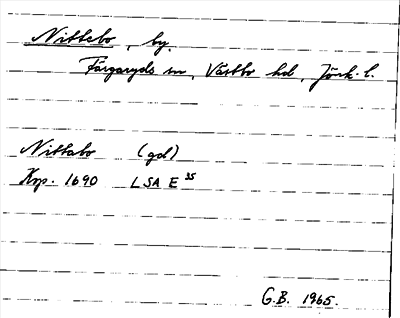 Nittebo, by.
Färgaryds sn, Västbo hd, Jönk. l.
Nittabo (gd)
Krp. 1690 LSA E 35
G.B. 1965.